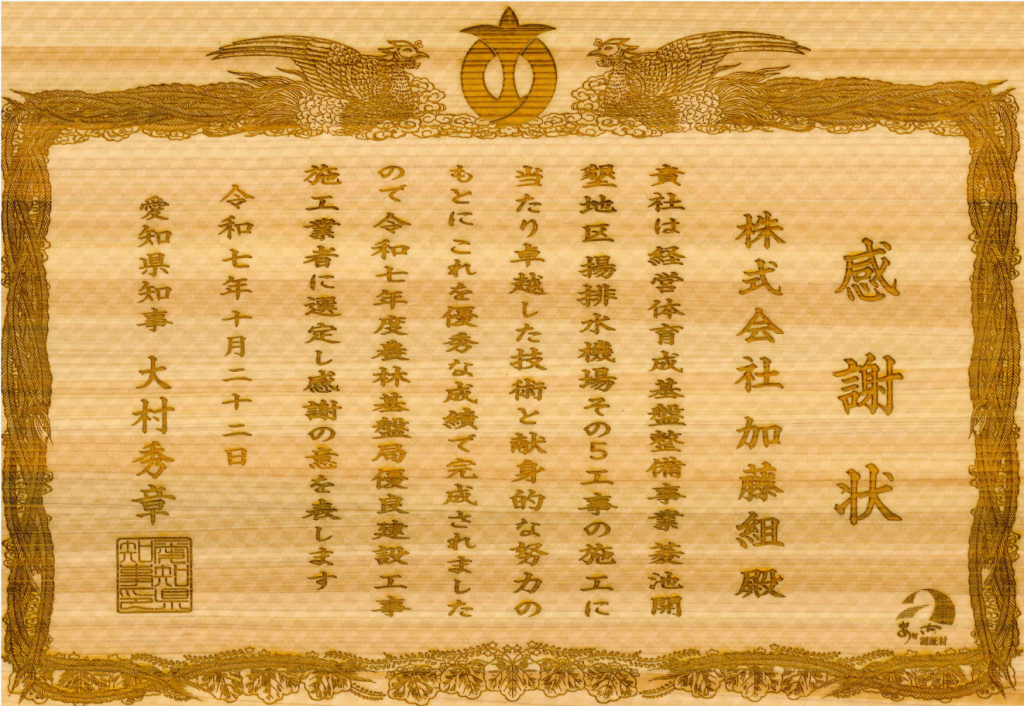 感謝状
株式会社 加藤組 殿
貴社は経営体育成基盤整備事業 菱池開
墾地区揚排水機場その5工事の施工に
当たり卓越した技術と献身的な努力の
もとにこれを優秀な成績で完成されました
ので令和七年度農林基盤局優良建設工事
施工業者に選定し感謝の意を表します
令和七年十月二十二日
愛知県知事 大村秀章
愛知県
知事之印